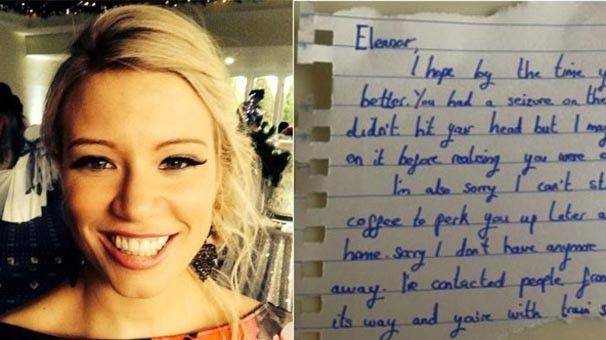 Eleanor,
I hope by the time y
better. You had a seizure on the
didn't hit your head but I may
on it before realising you were
I'm also sorry I can't st
coffee to perk you up later a
home. Sorry I don't have anymore
away. I've contacted people from
its way and you're with train s